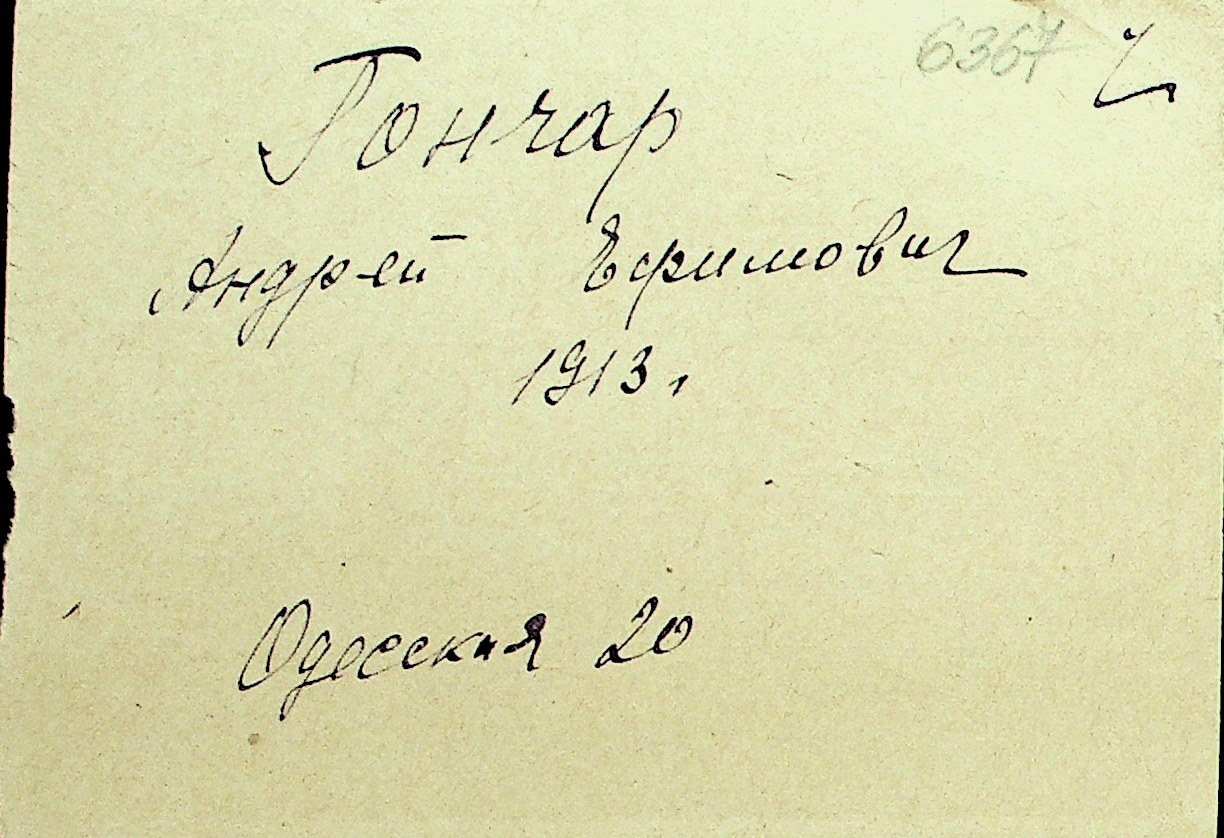 6367
Гончар
Андрей Ефимович
1913 г
Одесская 20